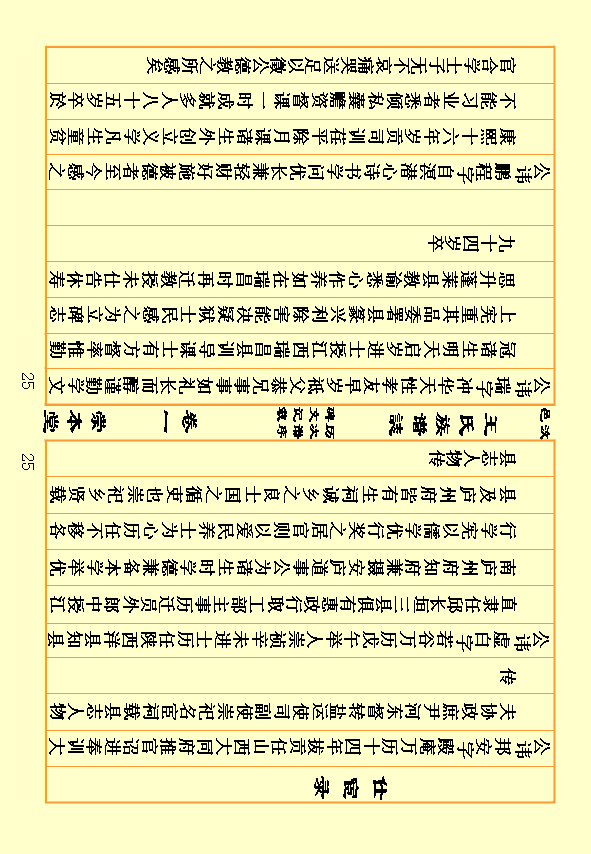 仕宦录
公讳邦安字殿庵万历十四年拔贡任山西大同府推官诏进奉训大
夫协政庶尹河东督转盐运使司副使崇祀名宦祠载县志人物
传
公讳虚白字若谷万历戊午举人崇祯辛未进士历任陕西洋县知县
直隶任邱长垣三县俱有惠政行取工部主事历迁员外郎中授江
南庐州府知府兼摄安庐道事公为诸生时学德兼备本学举优
行学宪以儒学优行奖之居官则以爱民养士为心历任不移各
县及庐州府皆有生祠诚乡之良士国之循吏也崇祀乡贤载
县志人物传
25
王氏族谱誌
历次谱序
碑文记载
卷一
崇本堂
25
公讳瑞字冲华天性孝友早岁祗父恭兄事事如礼长而醇谨勤学文
冠诸生明天启岁进士授江西瑞昌县训导课士有方督率惟勤
上宪重其品委署县篆兴利除害能决疑狱士民感之为立碑志
思升蓬莱县教谕悉心作养如在瑞昌时再迁教授未仕告休寿
九十四岁卒
公讳鹏程字自溟潜心诗书学问优长兼轻财好施被德者至今感之
康熙十六年岁贡司训茌平除月课诸生外创立义学凡生童贫
不能习业者悉倾私囊资督课一时成就多人八十五岁卒於
官合学士子无不哀痛哭送足以徵公德教之所感矣